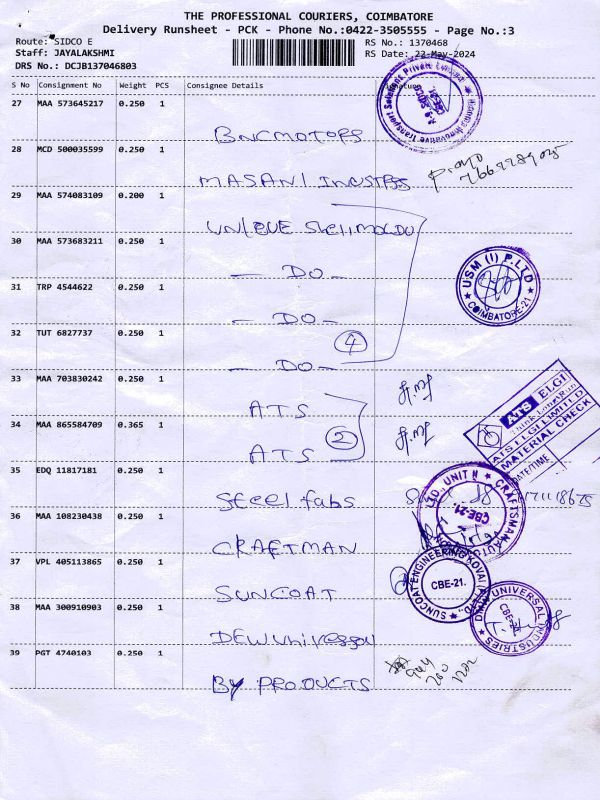 THE PROFESSIONAL COURIERS, COIMBATORE
Delivery Runsheet - PCK - Phone No.:0422-3505555 - Page No.:3
Route: SIDCO E
RS No.: 1370468
Staff: JAYALAKSHMI
RS Date: 22-May-2024
DRS No.: DCJB137046803
S No Consignment No Weight PCS Consignee Details Signature
27 MAA 573645217 0.250 1
BNCMOTORS
28 MCD 500035599 0.250 1
MASANI INDUSTRIES
29 MAA 574083109 0.200 1
UNIQUE Shellmould
30 MAA 573683211 0.250 1
- DO -
31 TRP 4544622 0.250 1
- DO -
32 TUT 6827737 0.250 1
- DO -
4
33 MAA 703830242 0.250 1
ATS
34 MAA 865584709 0.365 1
ATS
2
35 EDQ 11817181 0.250 1
Steel fabs
36 MAA 108230438 0.250 1
CRAFTMAN
37 VPL 405113865 0.250 1
SUNCOAT
38 MAA 300910903 0.250 1
39 PGT 4740103 0.250 1
BY PRODUCTS
USM (I) P.LTD
COIMBATORE-21
ATS ELGI
ATS ELGI LIMITED
MATERIAL CHECK
DATE/TIME
LTD., UNIT II
CRAFTSMAN AUTO
CBE-21.
SUNCOAT ENGINEERING KOVAI P LTD.,
CBE-21.
UNIVERSAL INDUSTRIES
CBE-21